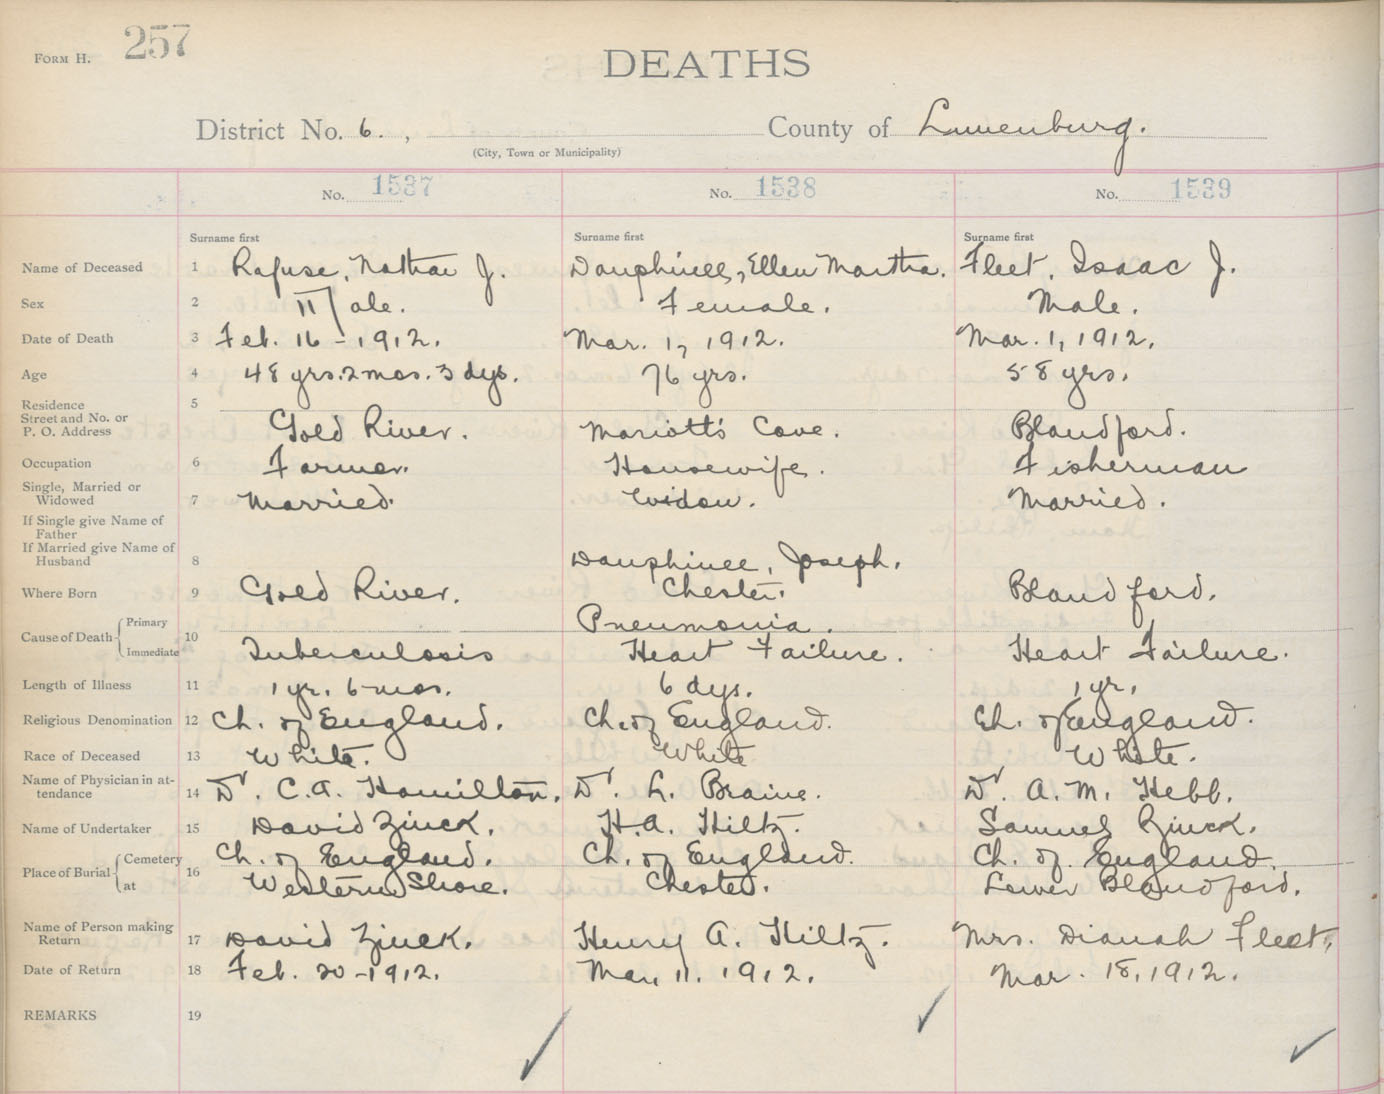 FORM H. 257
DEATHS
District No. 6. , County of Lunenburg.
(City, Town or Municipality)
No. 1537 No. 1538 No. 1539
Surname first Surname first Surname first
Name of Deceased 1 Rafuse, Nathan J. Dauphinee, Ellen Martha. Fleet, Isaac J.
Sex 2 Male. Female. Male.
Date of Death 3 Feb. 16 - 1912. Mar. 1, 1912. Mar. 1, 1912.
Age 4 48 yrs. 2 mos. 3 dys. 76 yrs. 58 yrs.
Residence 5
Street and No. or
P. O. Address Gold River. Mariott's Cove. Blandford.
Occupation 6 Farmer. Housewife. Fisherman
Single, Married or
Widowed 7 Married. Widow. Married.
If Single give Name of
Father
If Married give Name of
Husband 8 Dauphinee, Joseph.
Where Born 9 Gold River. Chester. Blandford.
Cause of Death 10 Primary Pneumonia.
Immediate Tuberculosis Heart Failure. Heart Failure.
Length of Illness 11 1 yr. 6 mos. 6 dys. 1 yr.
Religious Denomination 12 Ch. of England. Ch. of England. Ch. of England.
Race of Deceased 13 White. White White.
Name of Physician in at-
tendance 14 Dr. C.A. Hamilton. Dr. L. Braine. Dr. A. M. Hebb.
Name of Undertaker 15 David Zinck. H.A. Hiltz. Samuel Zinck.
Place of Burial 16 Cemetery Ch. of England. Ch. of England. Ch. of England.
at Western Shore. Chester. Lower Blandford.
Name of Person making
Return 17 David Zinck. Henry A. Hiltz. Mrs. Dianah Fleet,
Date of Return 18 Feb. 20 - 1912. Mar. 11. 1912. Mar. 18, 1912.
REMARKS 19